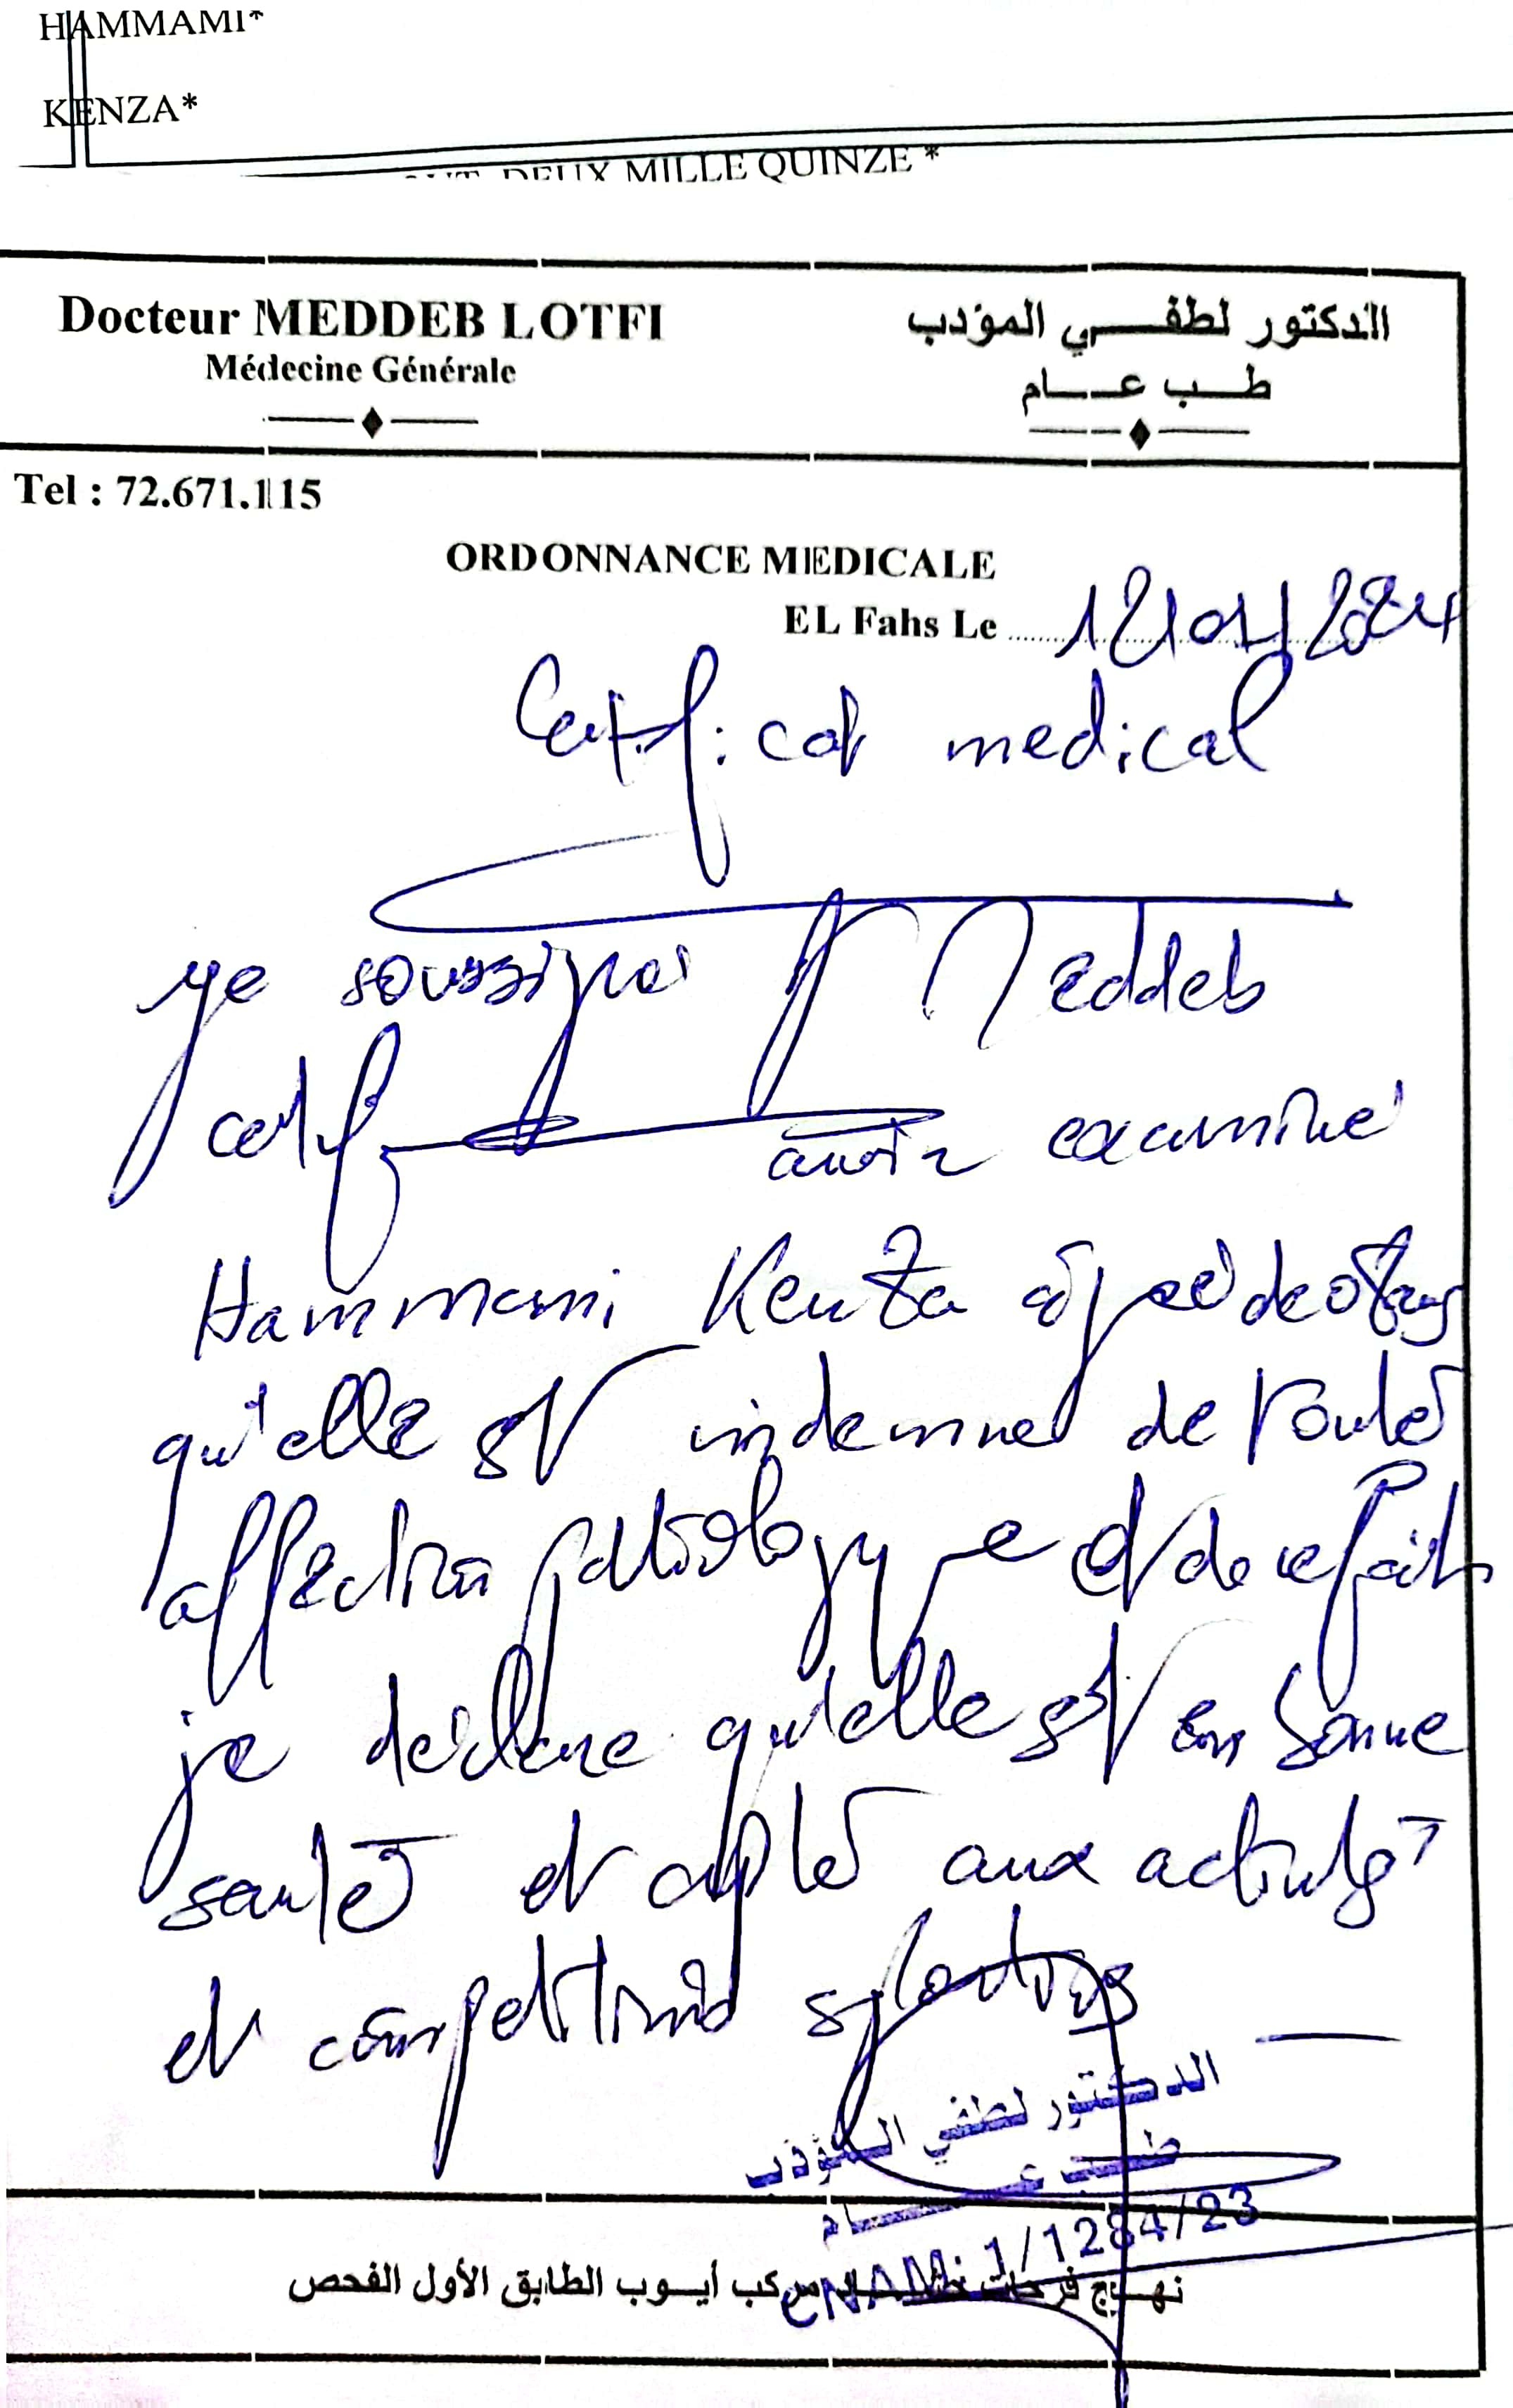 HAMMAMI*
KENZA*
DEUX MILLE QUINZE *
Docteur MEDDEB LOTFI
الدكتور لطفي المؤدب
Médecine Générale
طب عام
Tel : 72.671.115
ORDONNANCE MEDICALE
EL Fahs Le 12/01/2024
Certificat medical
je soussigné Dr Meddeb
certifie avoir examiné
Hammami Kenza âgée de
qu'elle est indemne de toute
affection pathologique et de ce fait
je déclare qu'elle est en bonne
santé et apte aux activités
et compétitions sportives
الدكتور لطفي المؤدب
طب عام
CNAM: 1/1284/23
نهج فرحات حشاد مركب أيوب الطابق الأول الفحص